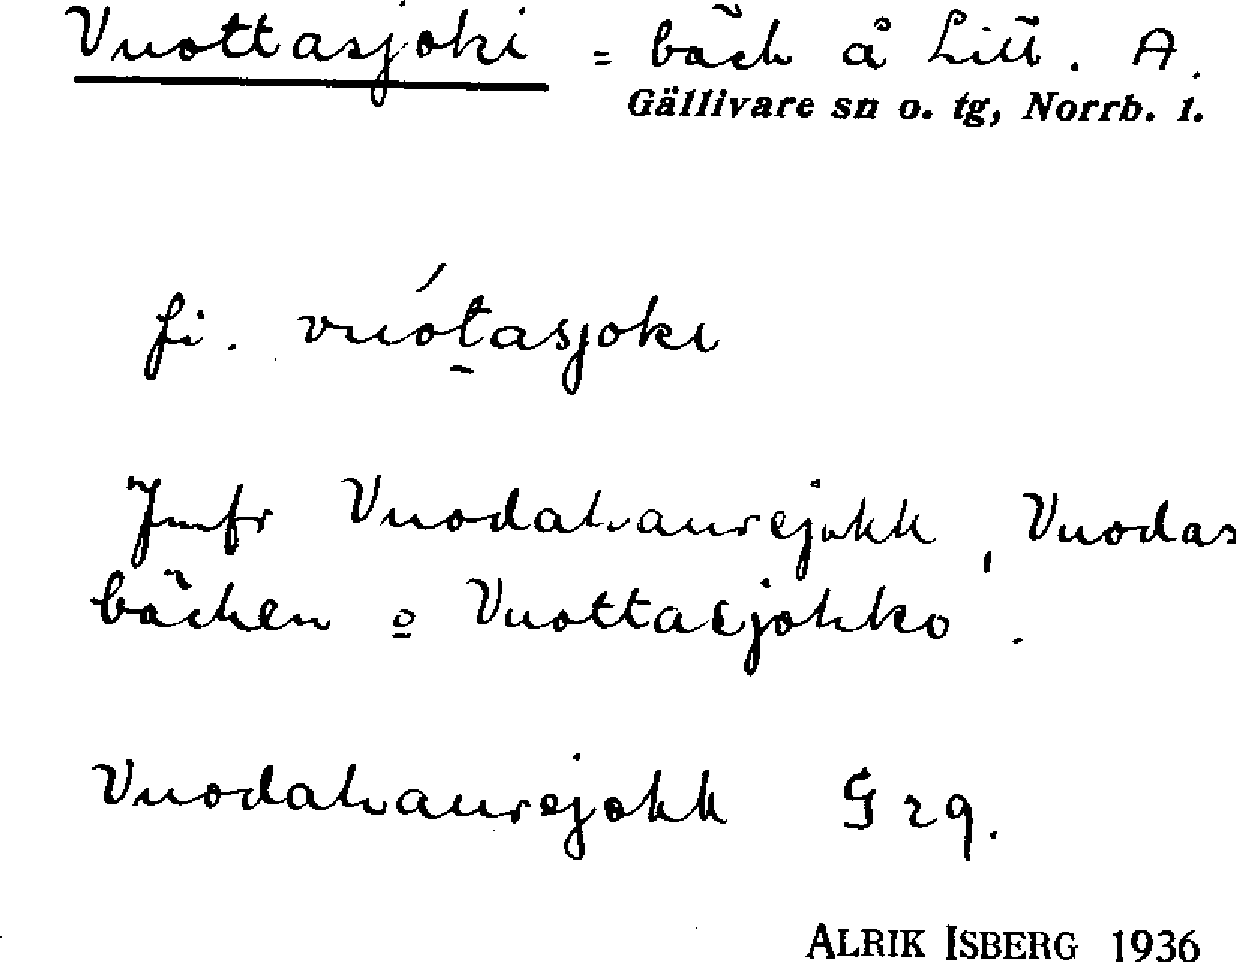 Vuottasjoki = bäck å Litt. A.
Gällivare sn o. tg, Norrb. l.
fi. vuótasjoki
Jmfr Vuodakaurejokk, Vuodas
bäcken o Vuottasjokko.
Vuodakaurejokk G 29.
ALRIK ISBERG 1936